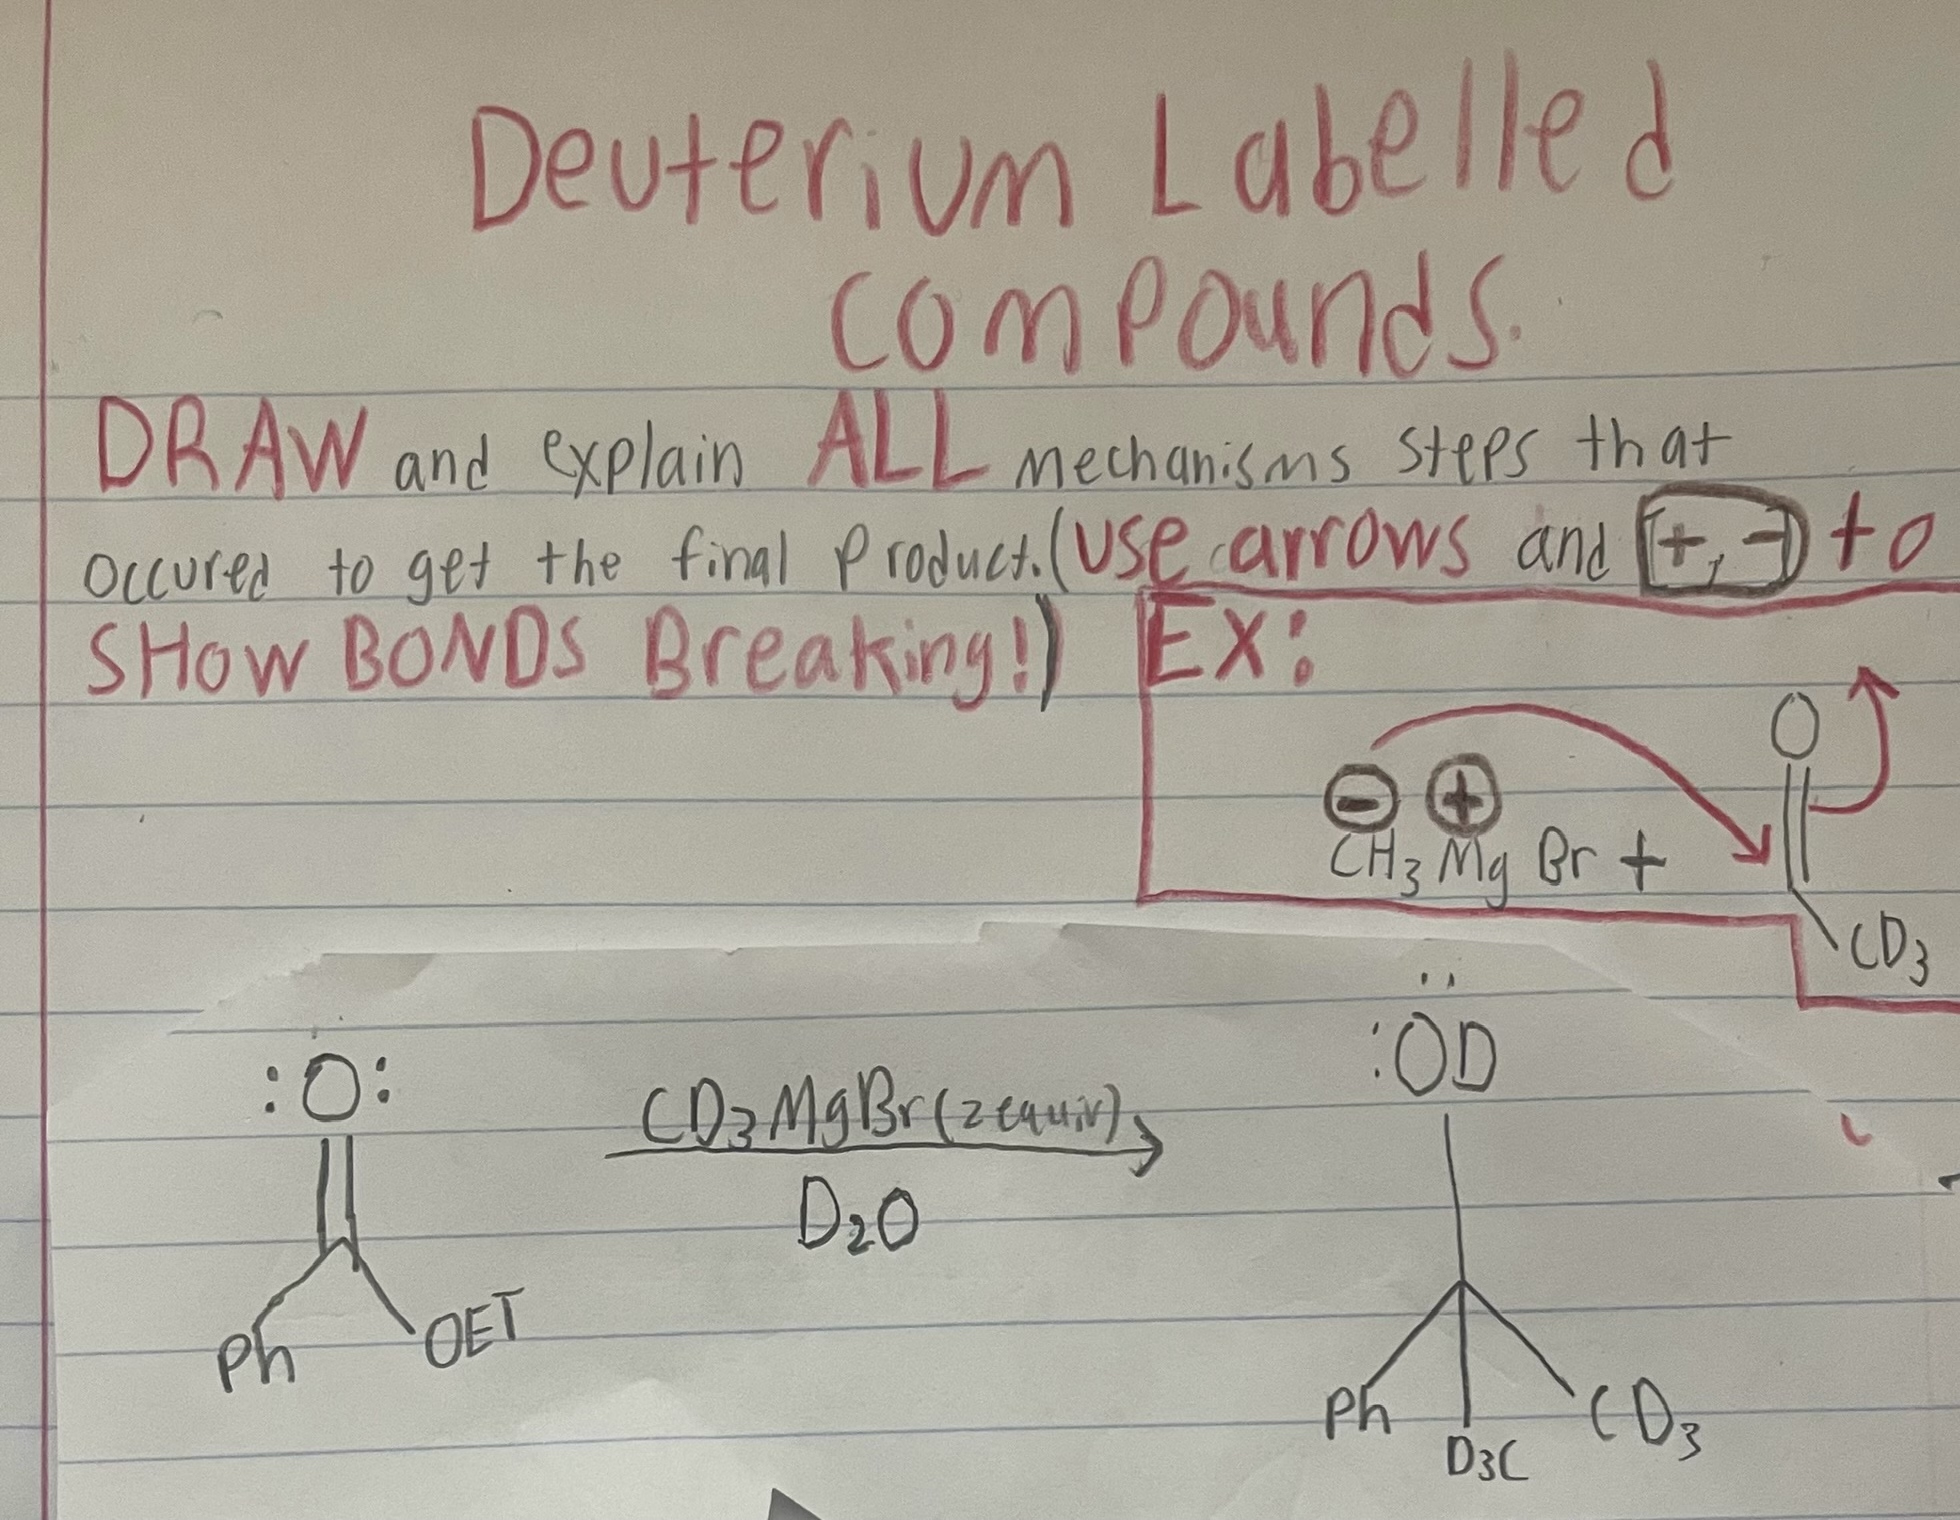 Deuterium Labelled
compounds.
DRAW and explain ALL mechanisms steps that
occured to get the final product. (use arrows and [+, -] to
SHOW BONDS Breaking!)
EX:
O
⊖ ⊕
CH3 Mg Br +
CD3
:O:
Ph
OET
CD3MgBr (2 equiv)
D2O
:OD
Ph
D3C
CD3